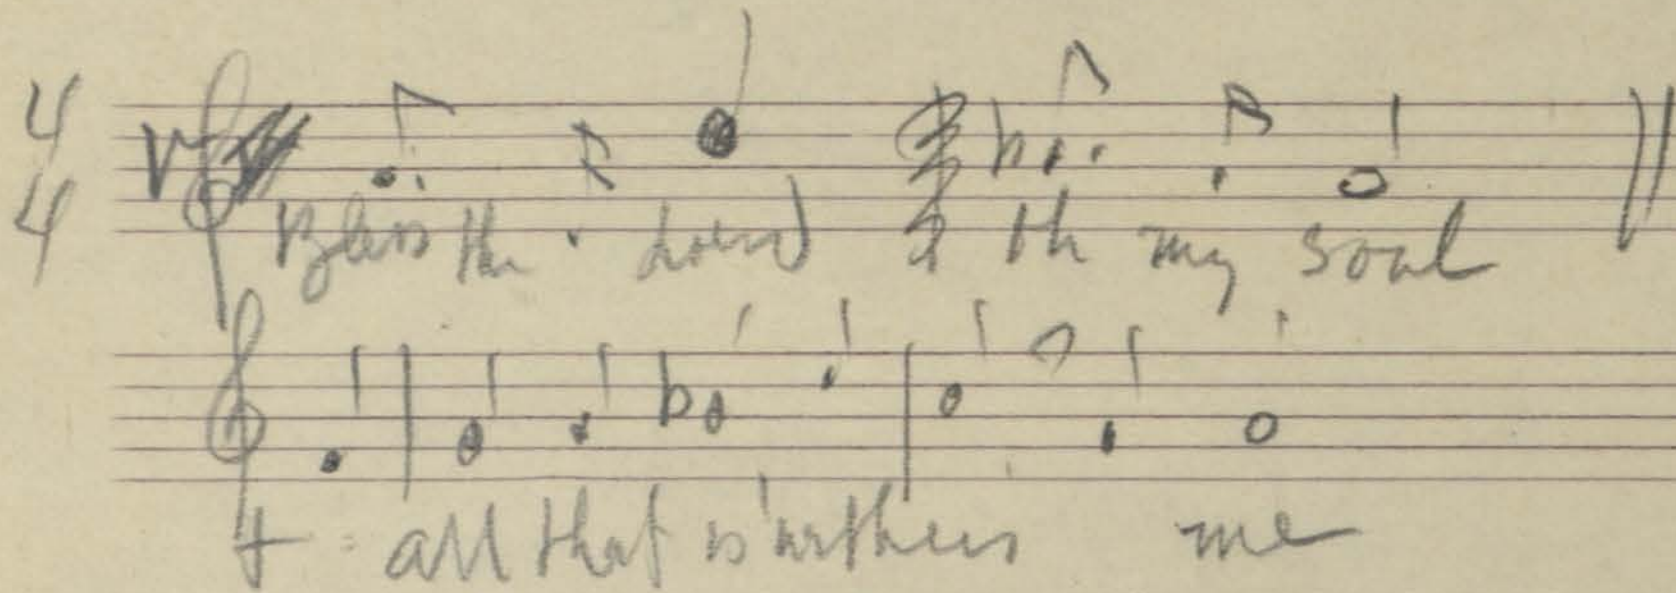 4
4
Bless the Lord my soul
+ all that is within me